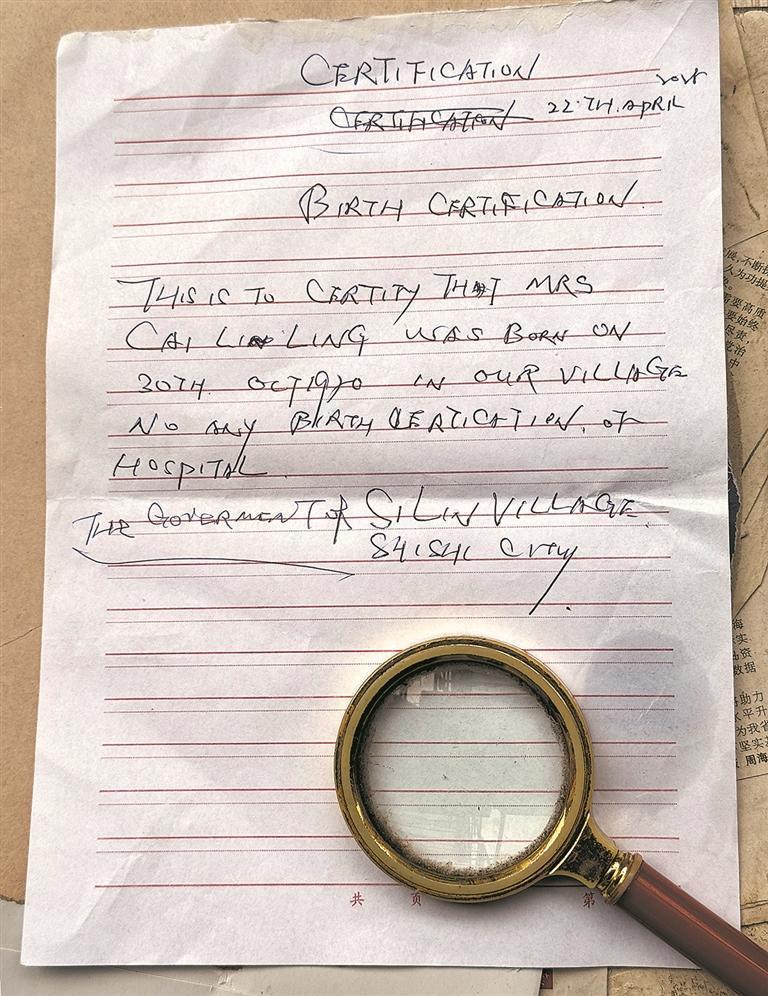 CERTIFICATION
CERTIFICATION 22.TH.APRIL
BIRTH CERTIFICATION.
THIS IS TO CERTITY THAT MRS
CAI LING WAS BORN ON
30TH OCT 1970 IN OUR VILLAGE
NO ANY BIRTH CERTICATION. OF
HOSPITAL
THE GOVERMENT OF SILIN VILLAGE.
SHISHI CITY
共 页 第
展,不断
人为功
要高质
要始终
尽责,
党治
中
海
实
油资
数据
助力
水平升
为我省
坚实
周海